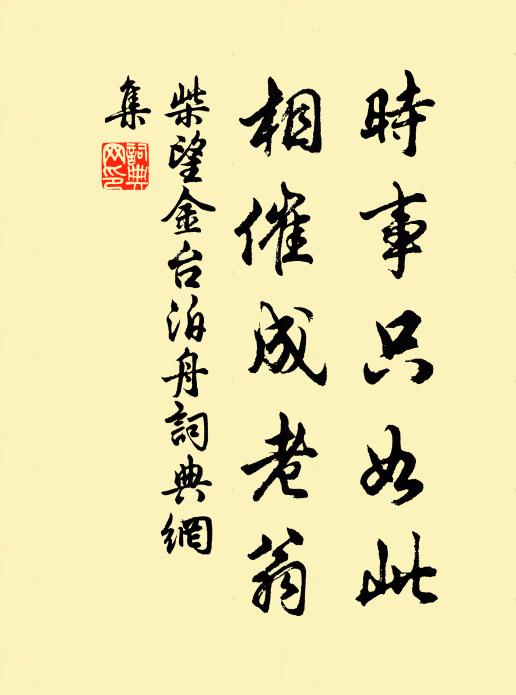 時事只如此
相催成老翁
柴望金台泊舟詞典網
集
詞典網印